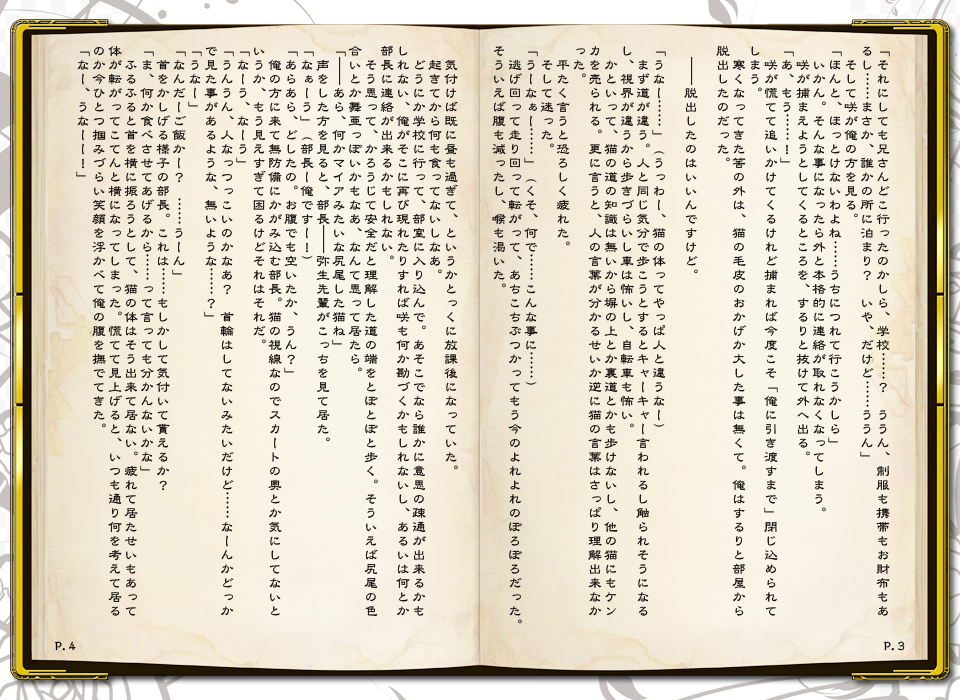 「それにしても兄さんどこ行ったのかしら、学校……？　ううん、制服も携帯もお財布もあ
るし……まさか、誰かの所に泊まり？　いや、だけど……ううん」
そして咲が俺の方を見る。
「ほんと、ほっとけないわよね……うちにつれて行こうかしら」
いかん。そんな事になったら外と本格的に連絡が取れなくなってしまう。
咲が捕まえようとしてくるところを、するりと抜けて外へ出る。
「あ、もう……！」
咲が慌てて追いかけてくるけれど捕まれば今度こそ「俺に引き渡すまで」閉じ込められて
しまう。
寒くなってきた筈の外は、猫の毛皮のおかげか大した事は無くて。俺はするりと部屋から
脱出したのだった。
――脱出したのはいいんですけど。
「うなー……」（うっわー、猫の体ってやっぱ人と違うなー）
まず道が違う。人と同じ気分で歩こうとするとキャーキャー言われるし触られそうになる
し、視界が違うから歩きづらいし車は怖いし、自転車も怖い。
かといって、猫の道の知識は無いから塀の上とか裏道とかも歩けないし、他の猫にもケン
カを売られる。更に言うと、人の言葉が分かるせいか逆に猫の言葉はさっぱり理解出来なか
った。
平たく言うと恐ろしく疲れた。
そして迷った。
「うなぁー……」（くそ、何で……こんな事に……）
逃げ回って走り回って転がって、あちこちぶつかってもう今のよれよれのぼろぼろだった。
そういえば腹も減ったし、喉も渇いた。
P.3
気付けば既に昼も過ぎて、というかとっくに放課後になっていた。
起きてから何も食ってないしなあ。
どうにか学校に行って、部室に入り込んで。あそこでなら誰かに意思の疎通が出来るかも
しれない、俺がそこに再び現れたりすれば咲も何か勘づくかもしれないし、あるいは何とか
部長に連絡が出来るかもしれない。
そう思って、かろうじて安全だと理解した道の端をとぼとぼと歩く。そういえば尻尾の色
合いとか舞っぽいかもなあ、なんて思って居たら。
「――あら、何かマイアみたいな尻尾した猫ね」
声をした方を見ると、部長――弥生先輩がこっちを見て居た。
「なぁーう」（部長ー俺ですー！）
「あらあら、どしたの。お腹でも空いたか、うん？」
俺の方に来て無防備にかがみ込む部長。猫の視線なのでスカートの奥とか気にしてないと
いうか、もう見えすぎて困るけどそれはそれだ。
「なーう、なーう」
「うんうん、人なつっこいのかなあ？　首輪はしてないみたいだけど……なーんかどっか
で見た事があるような、無いような……？」
「うなー」
「なんだーご飯かー？　……うーん」
首をかしげる様子の部長。これは……もしかして気付いて貰えるか？
「ま、何か食べさせてあげるから……って言っても分かんないかな」
ふるふると首を横に振ろうとして、猫の体はそう出来て居ない。疲れて居たせいもあって
体が転がってこてんと横になってしまった。慌てて見上げると、いつも通り何を考えて居る
のか今ひとつ掴みづらい笑顔を浮かべて俺の腹を撫でてきた。
「なー、うなーー！」
P.4